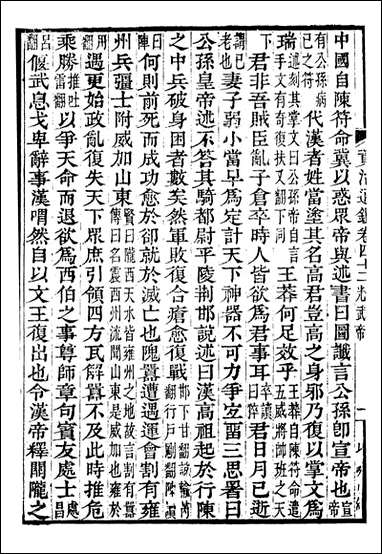 資治通鑑卷四十二 光武帝
中國自陳符命冀以惑眾帝與述書曰圖讖言公孫即宣帝也宣帝
有公孫病已之符代漢者姓當塗其名高君豈高之身邪乃復以掌文爲
瑞述刻其掌文曰公孫帝述手文有奇復扶又翻下同王莽何足效乎王莽自陳符命遣五威將帥班之天
下君非吾賊臣亂子倉卒時人皆欲爲君事耳卒讀曰猝君日月已逝
謂已老也妻子弱小當早爲定計天下神器不可力爭宜留三思署曰
公孫皇帝述不答其騎都尉平陵荆邯說述曰漢高祖起於行陳
之中兵破身困者數矣然軍敗復翻行戶剛翻陳讀
曰陣何則前死而成功愈於卻就於滅亡也隗囂遭遇運會割有雍
州兵彊士附威加山東賢曰隴西天水皆雍州之地故言割有囂傳曰名震西州流聞山東是威加也雍於
用翻遇更始政亂復失天下眾庶引領四方瓦解囂不及此時推危
乘勝推吐雷翻以爭天命而退欲爲西伯之事尊師章句賓友處士處昌
呂翻偃武息戈卑辭事漢喟然自以文王復出也令漢帝釋關隴之